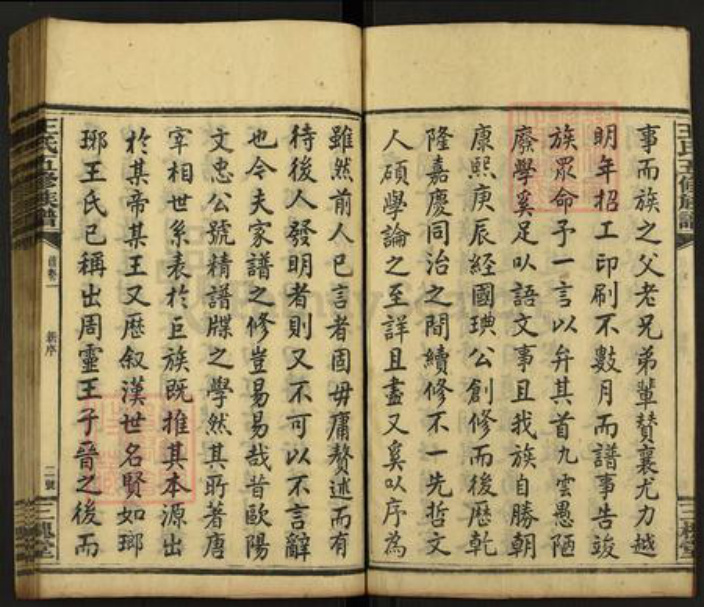 事而族之父老兄弟輩贊襄尤力越
明年招工印刷不數月而譜事告竣
族眾命予一言以弁其首九雲愚陋
廢學奚足以語文事且我族自勝朝
康熙庚辰經國璵公創修而後歷乾
隆嘉慶同治之間續修不一先哲文
人碩學論之至詳且盡又奚以序為
雖然前人已言者固毋庸贅述而有
待後人發明者則又不可以不言辭
也今夫家譜之修豈易易哉昔歐陽
文忠公號精譜牒之學然其所著唐
宰相世系表於巨族既推其本源出
於某帝某王又歷叙漢世名賢如瑯
瑯王氏已稱出周靈王子晉之後而
王氏五修族譜
首卷一
新序
二號
三槐堂